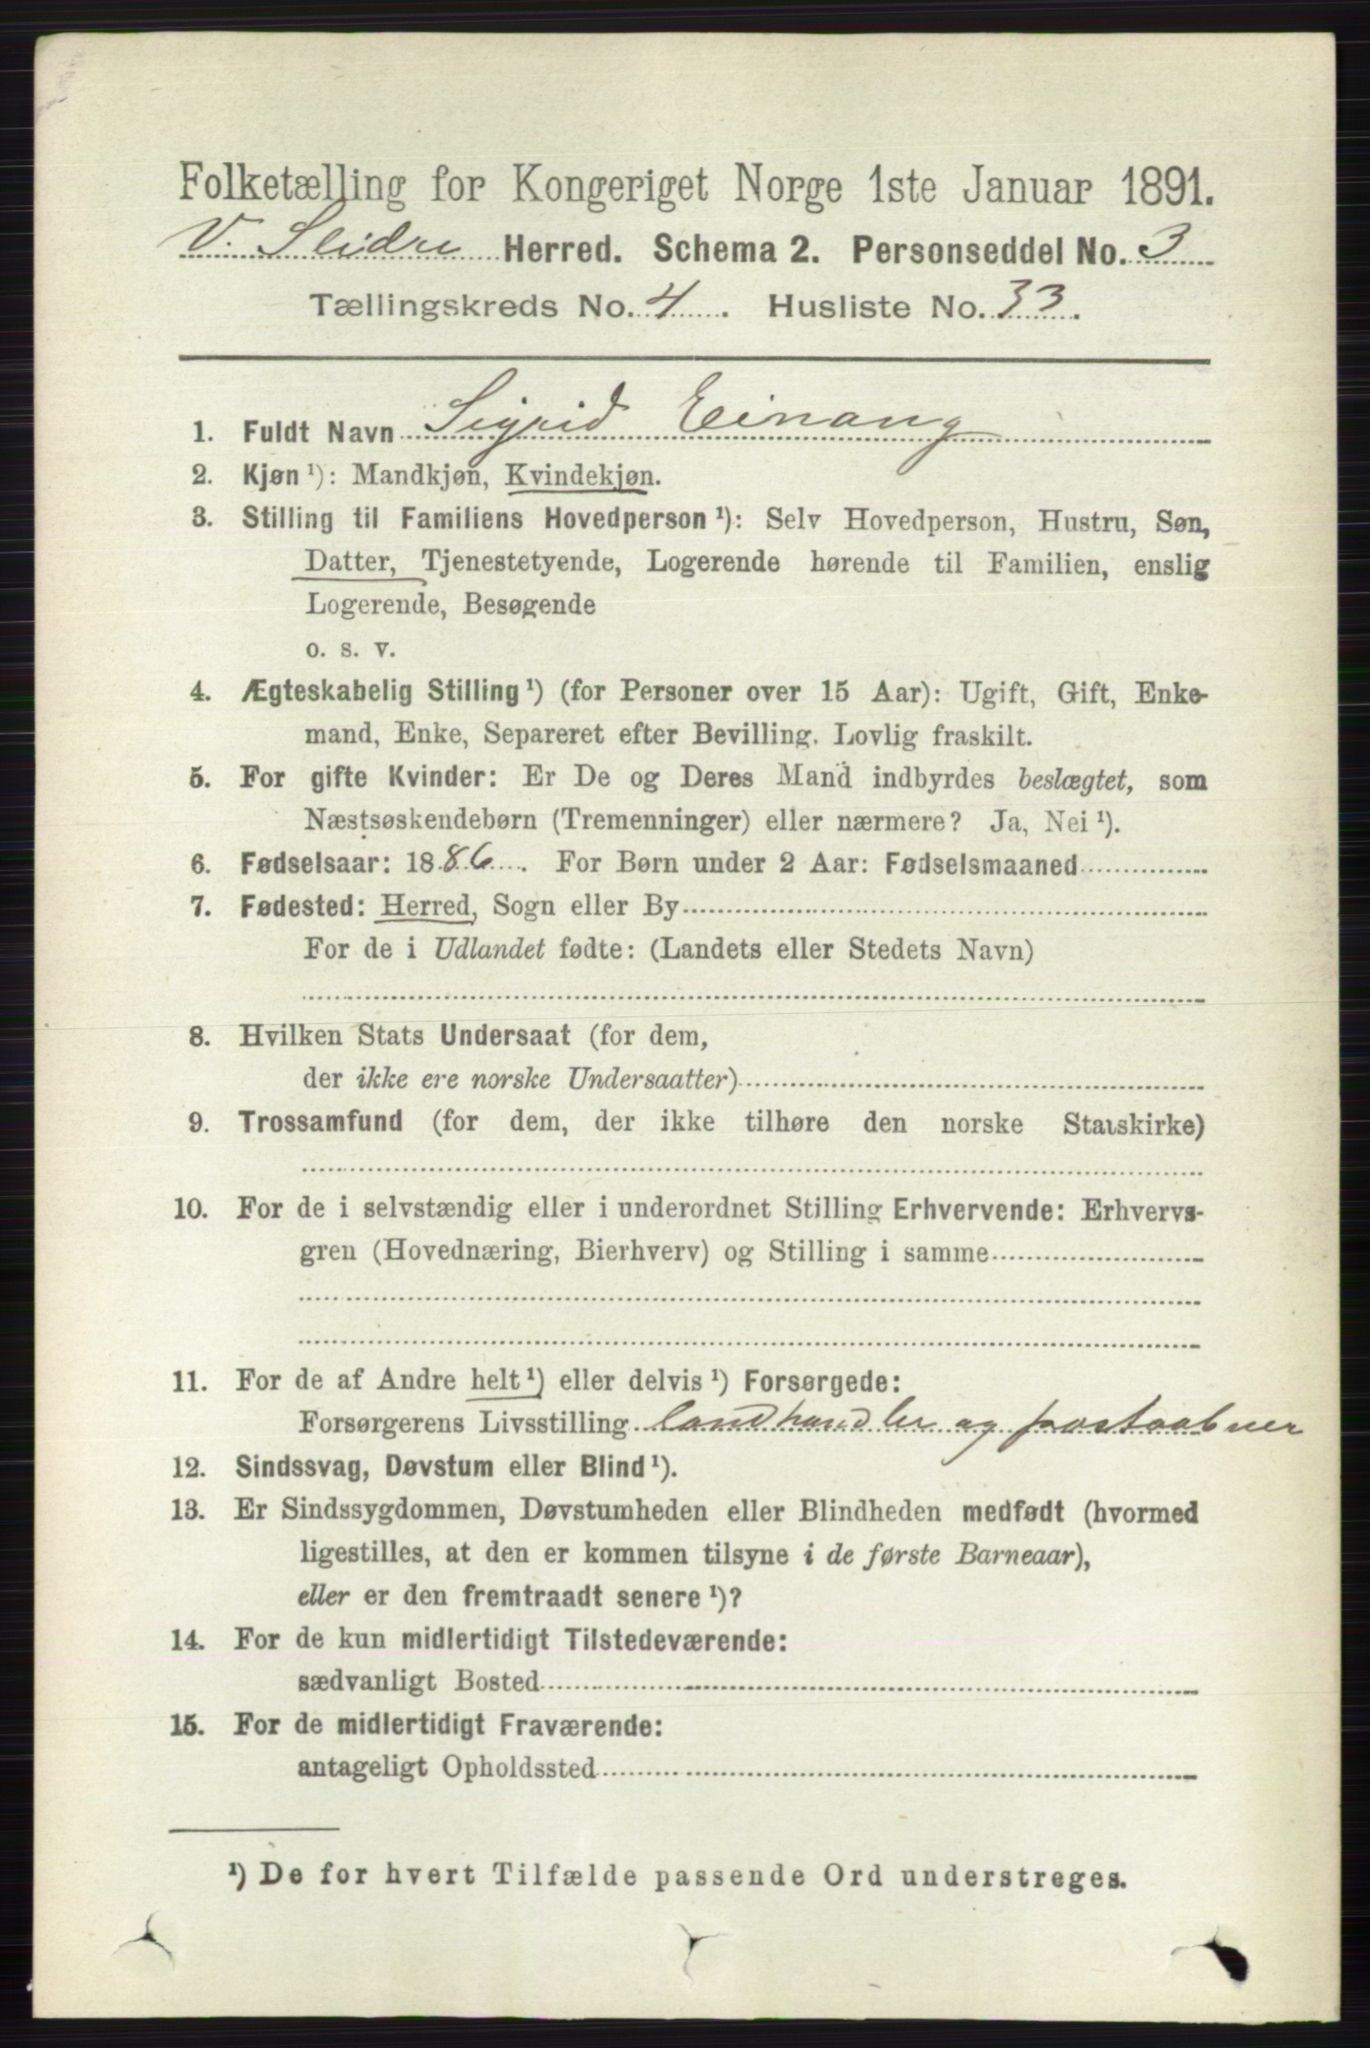 Folketælling for Kongeriget Norge 1ste Januar 1891.
V. Slidre Herred. Schema 2. Personseddel No. 3
Tællingskreds No. 4. Husliste No. 33.
1. Fuldt Navn Sigrid Einang
2. Kjøn ¹): Mandkjøn, Kvindekjøn.
3. Stilling til Familiens Hovedperson ¹): Selv Hovedperson, Hustru, Søn,
Datter, Tjenestetyende, Logerende hørende til Familien, enslig
Logerende, Besøgende
o. s. v.
4. Ægteskabelig Stilling ¹) (for Personer over 15 Aar): Ugift, Gift, Enke-
mand, Enke, Separeret efter Bevilling. Lovlig fraskilt.
5. For gifte Kvinder: Er De og Deres Mand indbyrdes beslægtet, som
Næstsøskendebørn (Tremenninger) eller nærmere? Ja, Nei ¹).
6. Fødselsaar: 1886. For Børn under 2 Aar: Fødselsmaaned
7. Fødested: Herred, Sogn eller By
For de i Udlandet fødte: (Landets eller Stedets Navn)
8. Hvilken Stats Undersaat (for dem,
der ikke ere norske Undersaatter)
9. Trossamfund (for dem, der ikke tilhøre den norske Statskirke)
10. For de i selvstændig eller i underordnet Stilling Erhvervende: Erhvervs-
gren (Hovednæring, Bierhverv) og Stilling i samme
11. For de af Andre helt ¹) eller delvis ¹) Forsørgede:
Forsørgerens Livsstilling landhandler og postaabner
12. Sindssvag, Døvstum eller Blind ¹).
13. Er Sindssygdommen, Døvstumheden eller Blindheden medfødt (hvormed
ligestilles, at den er kommen tilsyne i de første Barneaar),
eller er den fremtraadt senere ¹)?
14. For de kun midlertidigt Tilstedeværende:
sædvanligt Bosted
15. For de midlertidigt Fraværende:
antageligt Opholdssted
¹) De for hvert Tilfælde passende Ord understreges.